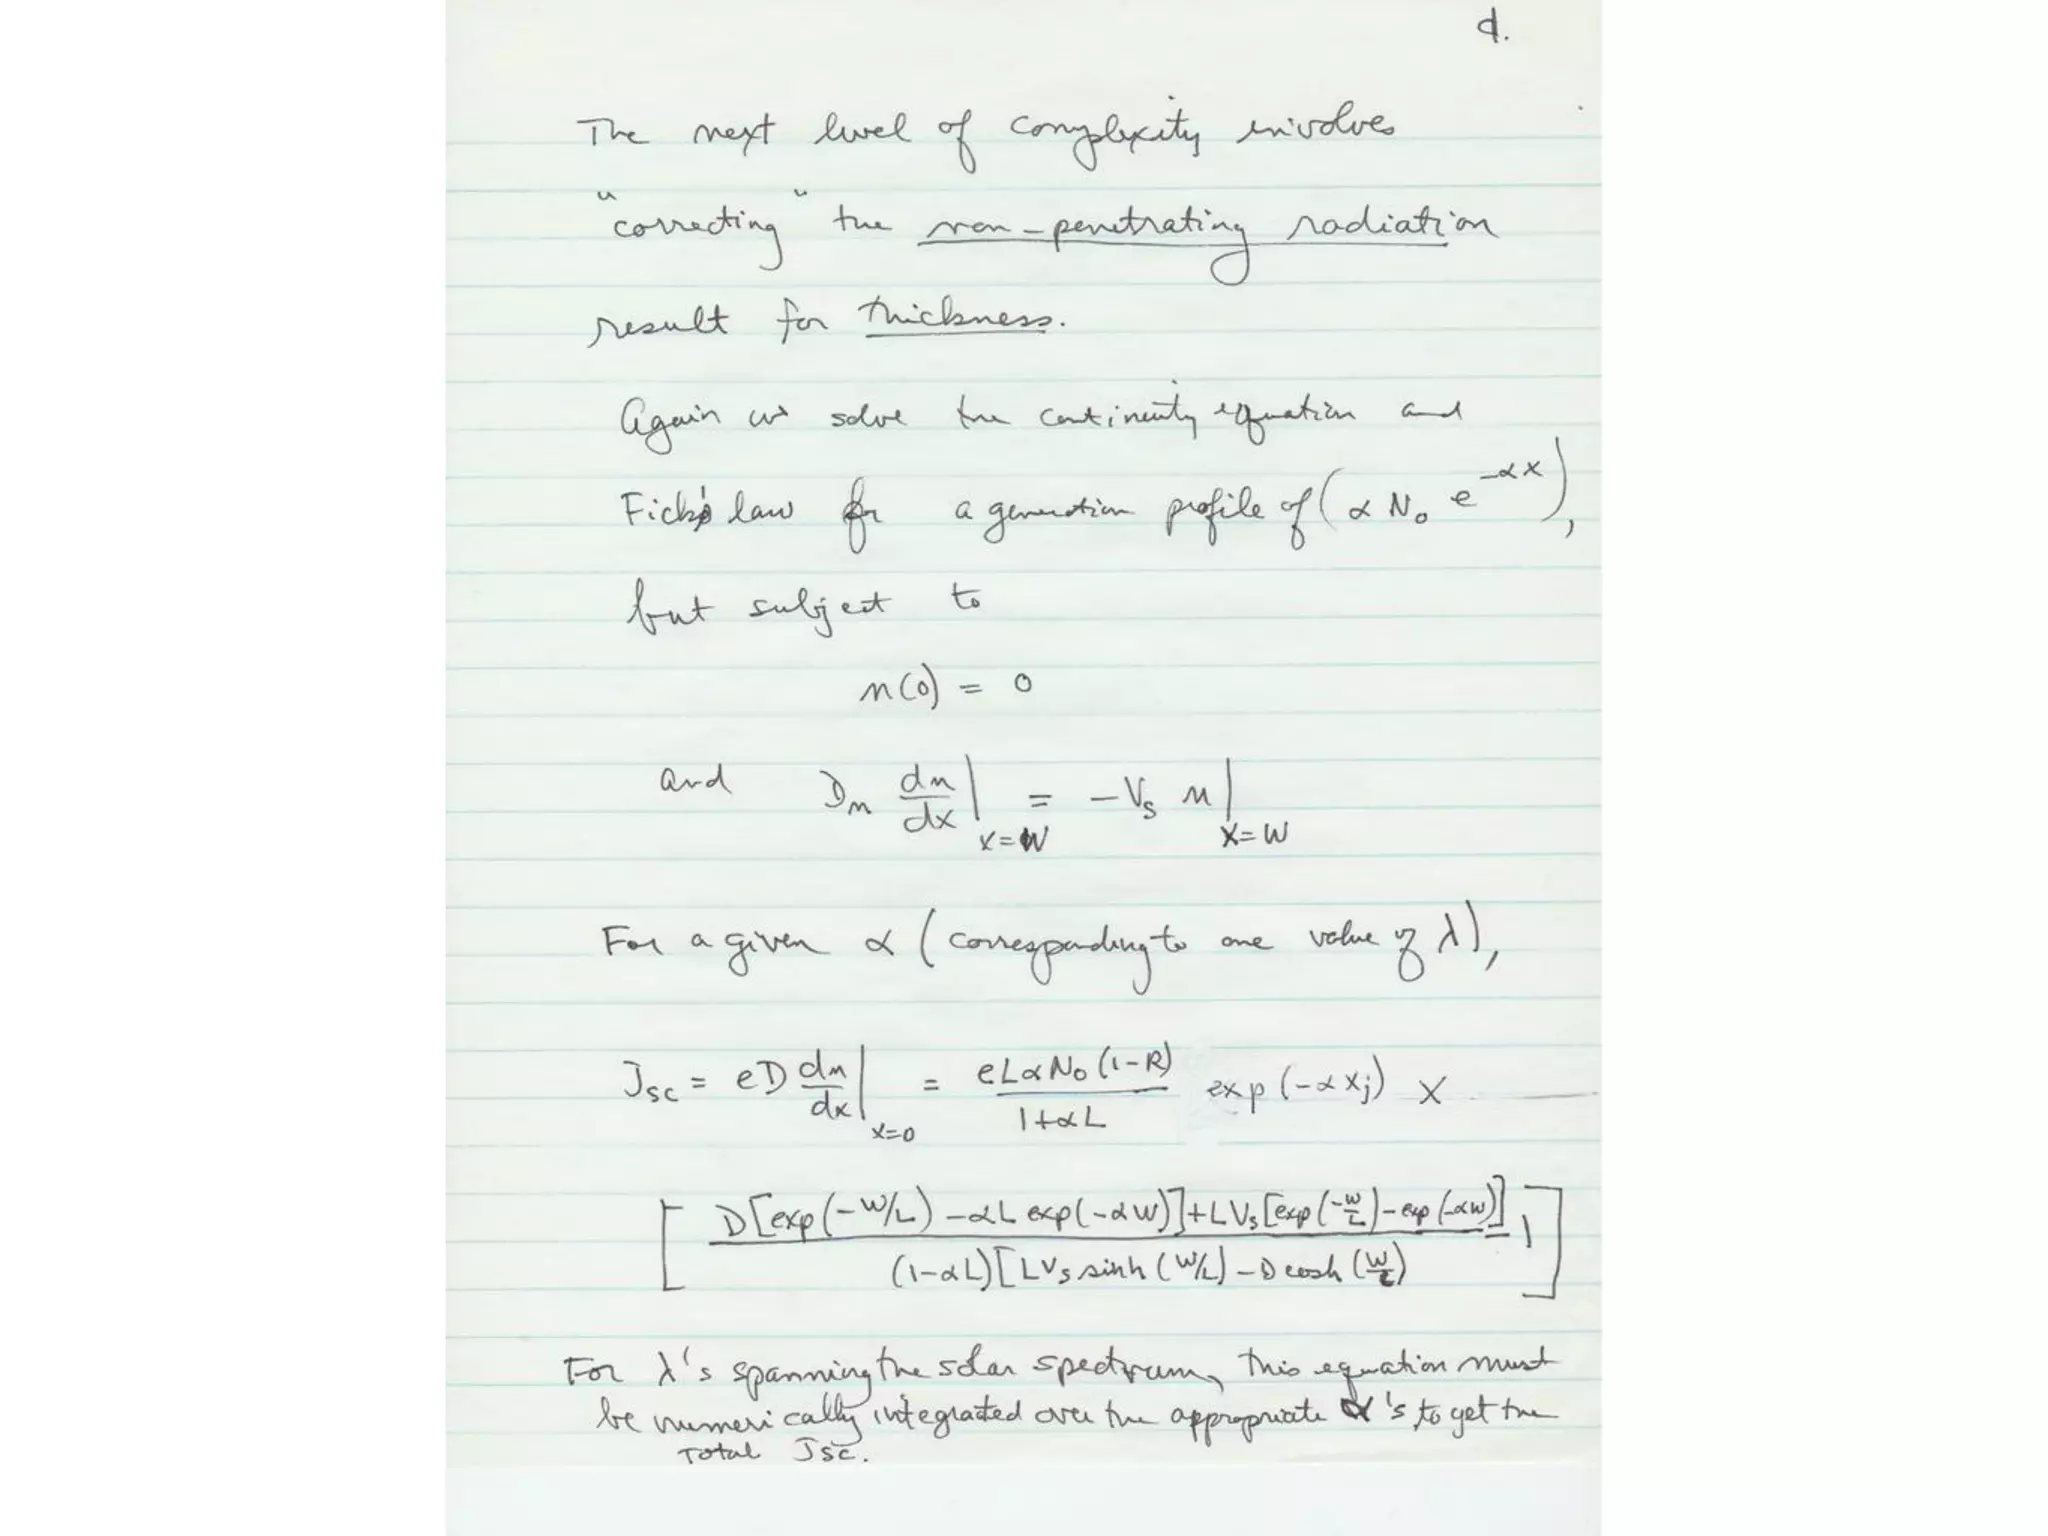 d.
The next level of complexity involves
"correcting" the non-penetrating radiation
result for thickness.
Again we solve the continuity equation and
Fick's law for a generation profile of (α N₀ e^{-αx}),
but subject to
n(0) = 0
and Dₙ dn/dx |_{x=W} = -V_s n |_{x=W}
For a given α (corresponding to one value of λ),
J_sc = eD dn/dx |_{x=0} = eLαN₀(1-R) / 1+αL exp(-αx_j) X
[ D[exp(-W/L) - αL exp(-αW)] + LV_s[exp(-W/L) - exp(-αW)] / (1-αL)[LV_s sinh(W/L) - D cosh(W/L) - 1 ]
For λ's spanning the solar spectrum, this equation must
be numerically integrated over the appropriate α's, to get the
Total Jsc.